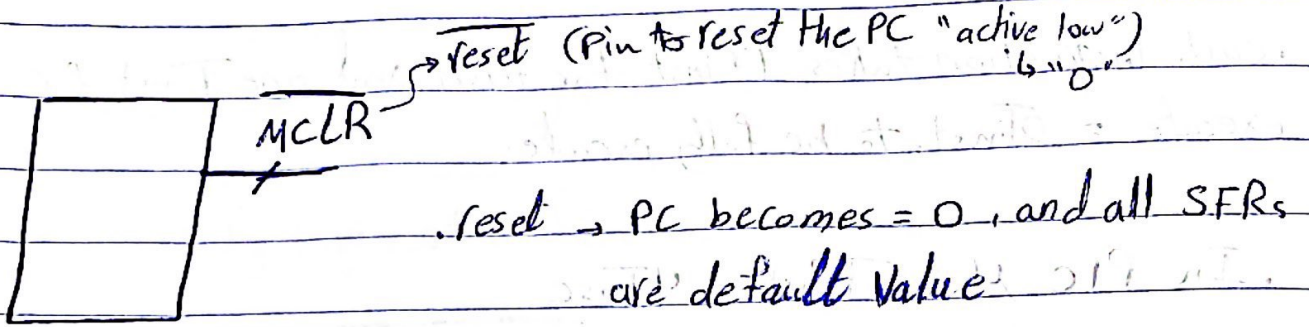 reset (Pin to reset the PC "active low")
↳ "0"
MCLR
. reset → PC becomes = 0, and all SFRs
are default Value